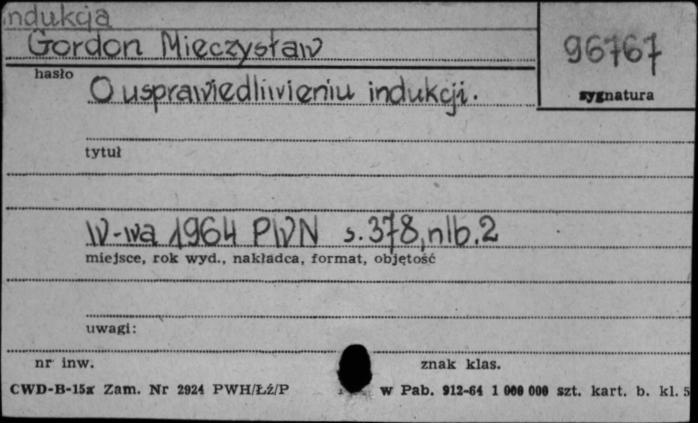 Indukcja
Gordon Mieczysław
96767
hasło
sygnatura
O usprawiedliwieniu indukcji.
tytuł
W-wa 1964 PWN s.378,nlb.2
miejsce, rok wyd., nakładca, format, objętość
uwagi:
nr inw.
znak klas.
CWD-B-15x Zam. Nr 2924 PWH/Łź/P
w Pab. 912-64 1 000 000 szt. kart. b. kl. 5